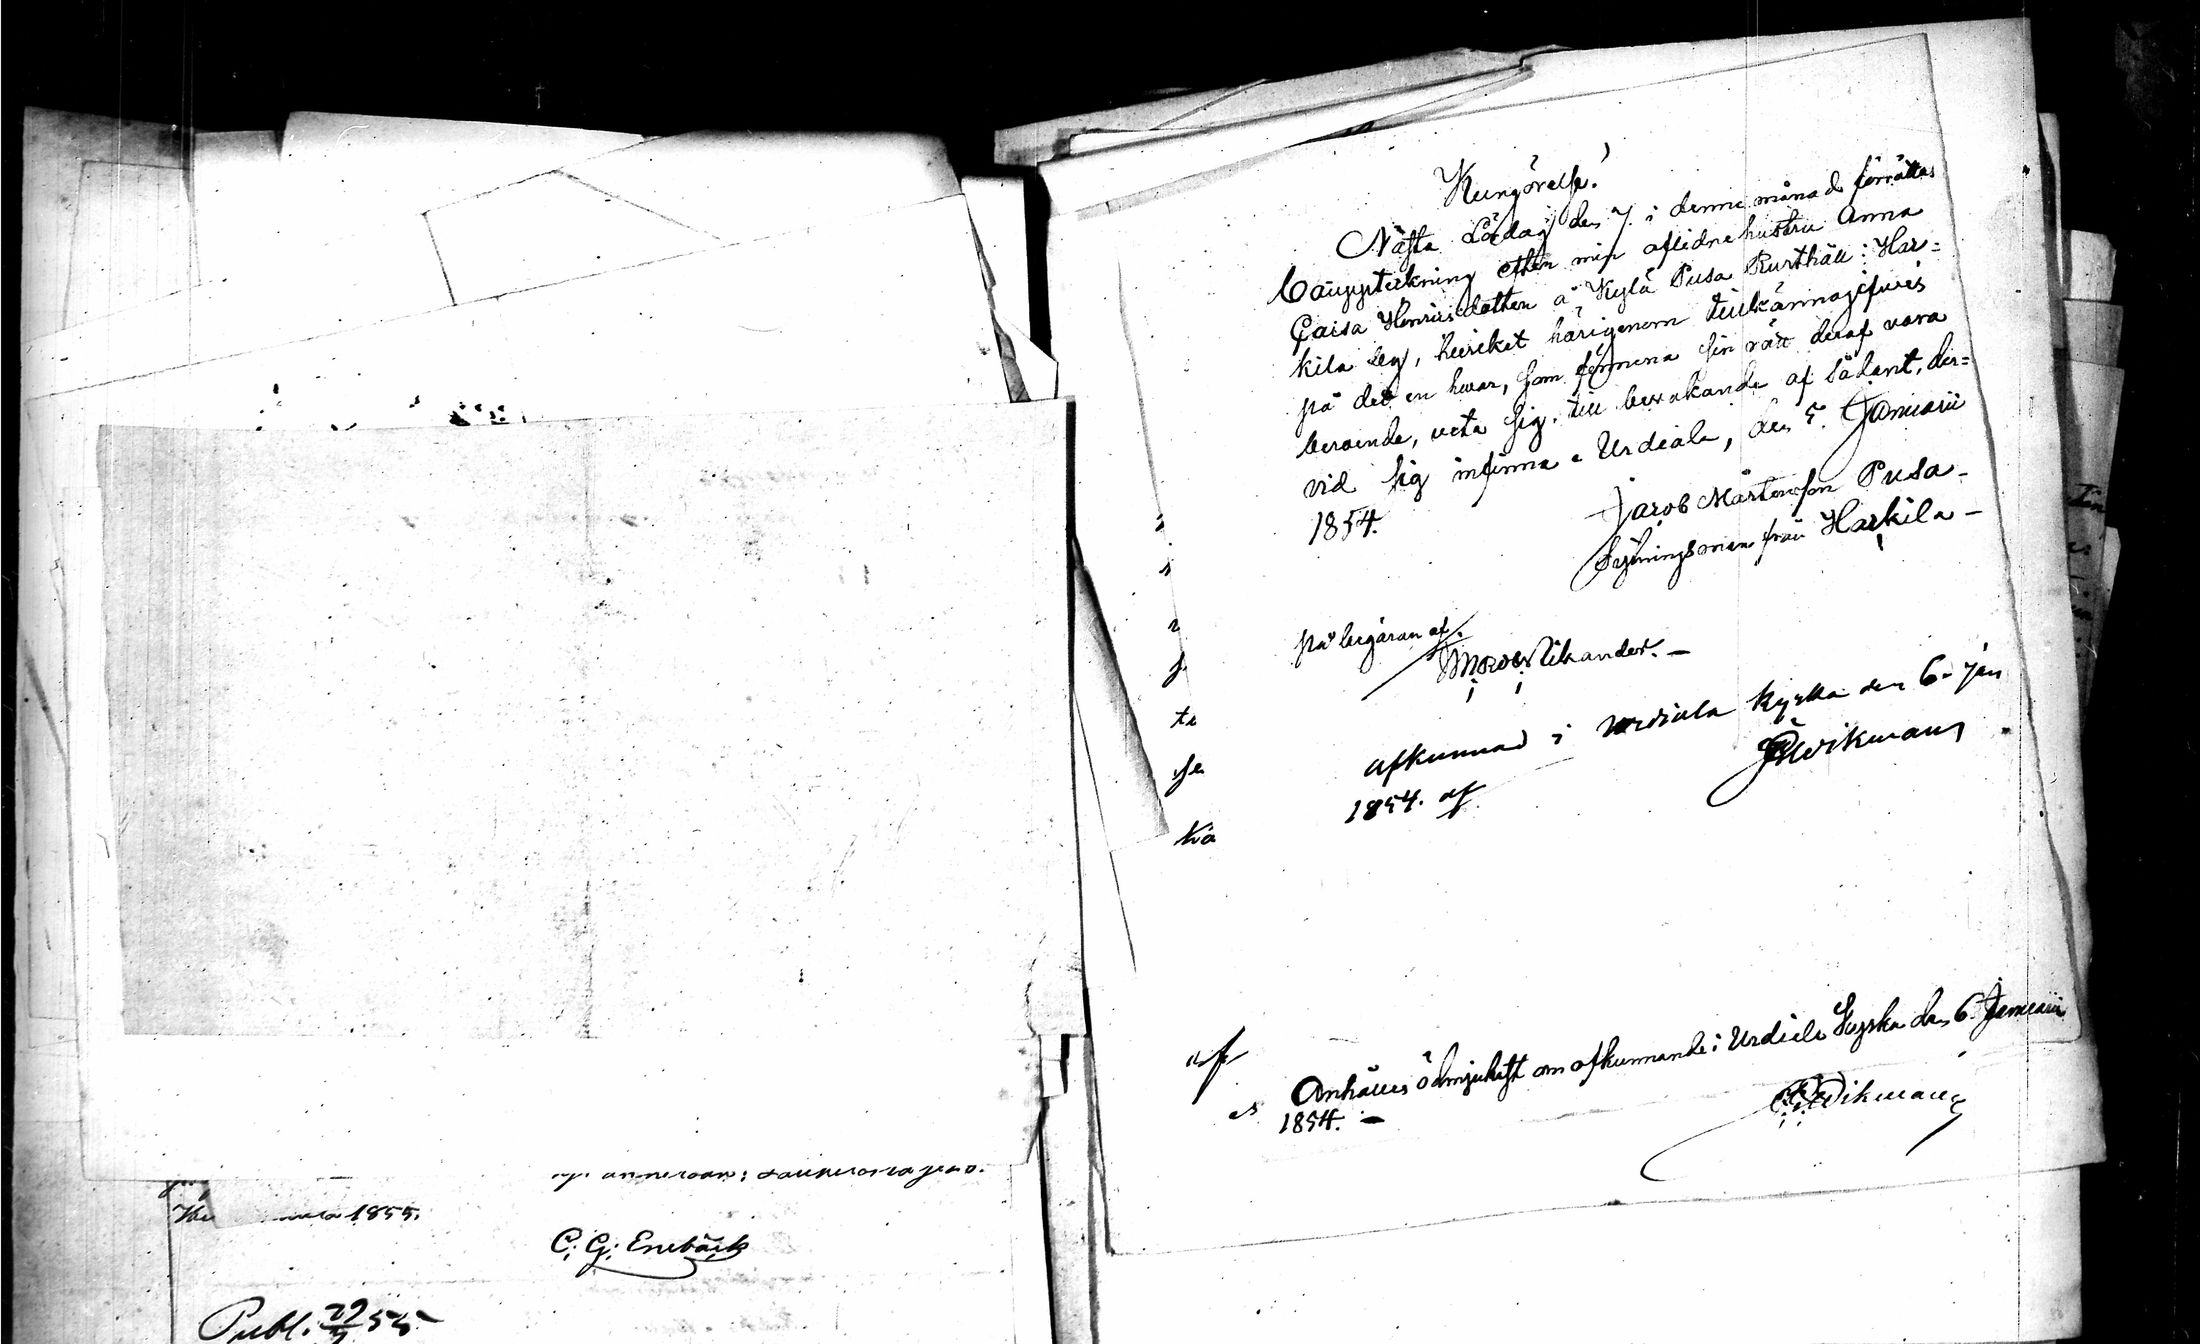 Kungörelse!
Nästa Lördag den 7. i denne månad förrättas
Bouppteckning efter min aflidne hustru Anna
Caisa Henricsdotter å Kylä Pusa Rusthåll i Har=
kila by, hvilket härigenom tillkännagifves
på det en hvar, som förmena sin rätt deraf vara
beroende, veta sig, till bevakande af sådant, der=
vid sig infinna. Urdiala, den 5. Januarii
1854.
Jacob Mårtensson Pusa-
Sytningsman från Harkila-
på begäran af.
Sikander.-
afkunnad i Urdiala kyrka den 6. Jan
1854. af
Wikman
te
kä
af
Anhålles ödmjukast om afkunnande i Urdiala Kyrka den 6. Januarii
1854.-
Wikman
1855.
C: G: Enebäck
Publ. 55